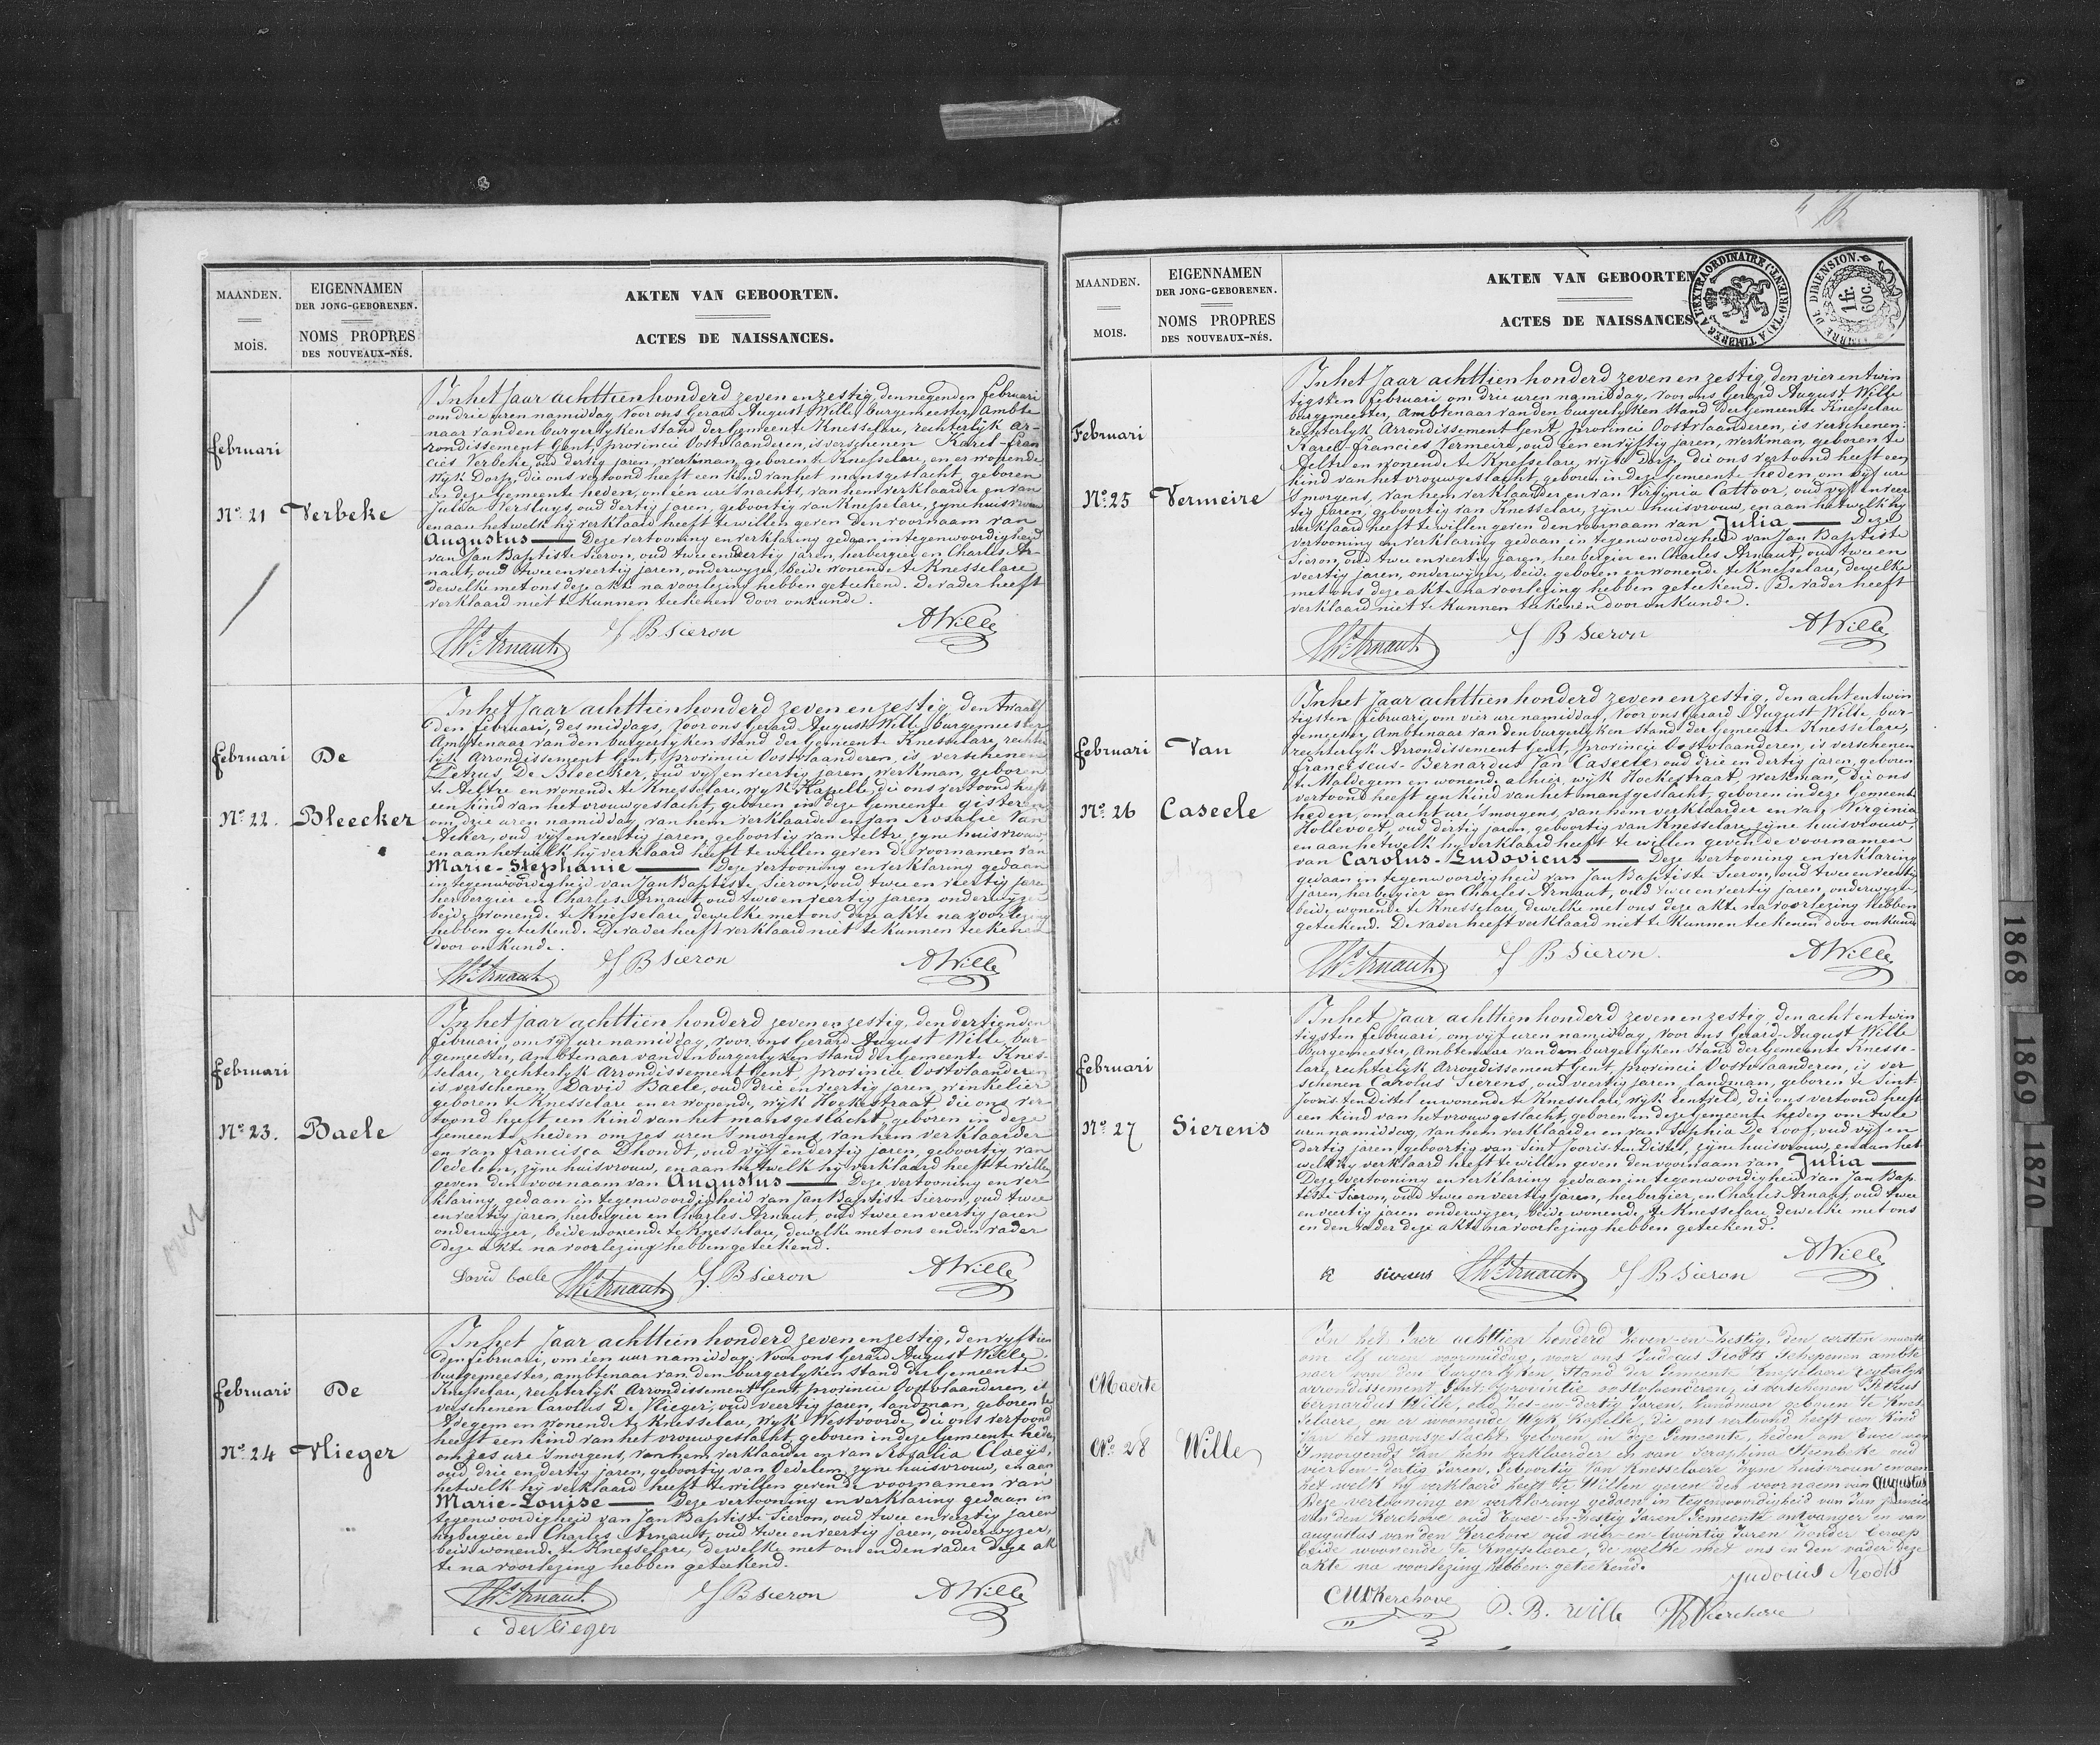 MAANDEN.
MOIS.
EIGENNAMEN
DER JONG-GEBORENEN.
NOMS PROPRES
DES NOUVEAUX-NÉS.
AKTEN VAN GEBOORTEN.
ACTES DE NAISSANCES.
februari
No. 21 Verbeke
In het Jaar achttien honderd zeven en zestig, den negenden februari
om drie uren namiddag, Voor ons Gerard August Wille burgemeester, Ambte
naar van den burgerlyken stand der Gemeente Knesselare, rechterlijk ar-
rondissement Gent, provincie Oostvlaanderen, is verschenen Karel-fran
cies Verbeke, oud dertig jaren, werkman, geboren te Knesselare, en er wonende
Wyk Dorp, die ons vertoond heeft een Kind van het mansgeslacht, geboren
in deze Gemeente heden, om een ure 's nachts, van hem verklaarder en van
Julia Versluys, oud dertig jaren, geboortig van Knesselare, zyne huisvrouw
en aan hetwelk hy verklaard heeft te willen geven den voornaam van
Augustus — Deze vertooning en verklaring gedaan, in tegenwoordigheid
van Jan Baptiste Sieron, oud twee en veertig jaren, herbergier en Charles Ar-
naut, oud twee en veertig jaren, onderwyzer, beide wonende te Knesselare
dewelke met ons deze akte na voorlezing hebben geteekend. De vader heeft
verklaard niet te kunnen teekenen door onkunde.
Chs Arnaut J B Sieron A Wille
februari De
No. 22. Bleecker
In het Jaar achttien honderd zeven en zestig, den twaalf
den februari, des middags, Voor ons Gerard August Wille burgemeester
Ambtenaar van den burgerlyken stand der Gemeente Knesselare rechter
lyk Arrondissement Gent, provincie Oostvlaanderen, is verschenen
Petrus De Bleecker, oud vyf en veertig jaren, werkman, geboren
te Aeltre en wonende te Knesselare, wyk Kapelle, die ons vertoond heeft
een kind van het vrouwgeslacht, geboren in deze Gemeente gisteren
om drie uren namiddag, van hem verklaarder en van Rosalie Van
Acker, oud vyf en veertig jaren, geboortig van Aeltre, zyne huisvrouw,
en aan hetwelk hy verklaard heeft te willen geven de voornamen van
Marie-Stephanie — Deze vertooning en verklaring gedaan
in tegenwoordigheid van Jan Baptiste Sieron, oud twee en veertig jaren
herbergier en Charles Arnaut, oud twee en veertig jaren onderwyzer
beide wonende te Knesselare, dewelke met ons deze akte na voorlezing
hebben geteekend. De vader heeft verklaard niet te kunnen teekenen
door onkunde.
Chs Arnaut J B Sieron A Wille
februari
No. 23. Baele
In het jaar achttien honderd zeven en zestig, den dertienden
februari, om vyf ure namiddag, voor ons Gerard August Wille, bur-
gemeester, Ambtenaar van den burgerlyken stand der Gemeente Knes-
selare, rechterlyk Arrondissement Gent, provincie Oostvlaanderen
is verschenen David Baele, oud drie en veertig jaren, winkelier
geboren te Knesselare en er wonende, wyk Hoekestraat, die ons ver
toond heeft, een kind van het mansgeslacht, geboren in deze
Gemeente, heden om zes uren 's morgens, van hem verklaarder
en van francisca Dhondt, oud vyf en dertig jaren, geboortig van
Oedelem, zyne huisvrouw, en aan hetwelk hy verklaard heeft te willen
geven den voornaam van Augustus — Deze vertooning en ver
klaring, gedaan in tegenwoordigheid van Jan Baptiste Sieron, oud twee
en veertig jaren, herbergier en Charles Arnaut, oud twee en veertig jaren
onderwijzer, beide wonende te Knesselare, dewelke met ons en den vader
deze akte na voorlezing hebben geteekend.
David baele Chs Arnaut J. B Sieron A Wille
februari De
No. 24 Vlieger
In het Jaar achttien honderd zeven en zestig, den vyftien
den februari, om één uur namiddag Voor ons Gerard August Wille
burgemeester, ambtenaar van den burgerlyken stand der Gemeente
Knesselare, rechterlyk Arrondissement Gent, provincie Oostvlaanderen, is
verschenen Carolus De Vlieger, oud veertig jaren, landman, geboren te
Adegem en wonende te Knesselare, wyk Westvoorde, die ons vertoond
heeft een kind van het vrouwgeslacht, geboren in deze Gemeente heden
om zes ure 's morgens, van hem verklaarder en van Rosalia Claeys,
oud drie en dertig jaren, geboortig van Oedelem, zyne huisvrouw, en aan
hetwelk hy verklaard heeft te willen geven de voornamen van
Marie-Louise — Deze vertooning en verklaring gedaan in
tegenwoordigheid van Jan Baptiste Sieron, oud twee en veertig jaren
herbergier en Charles Arnaut, oud twee en veertig jaren, onderwyzer,
beide wonende te Knesselare, dewelke met ons en den vader deze ak
te na voorlezing hebben geteekend.
Chs Arnaut J B Sieron A Wille
c de Vlieger
MAANDEN.
MOIS.
EIGENNAMEN
DER JONG-GEBORENEN.
NOMS PROPRES
DES NOUVEAUX-NÉS.
AKTEN VAN GEBOORTEN
ACTES DE NAISSANCES.
TIMBRER A L'EXTRAORDINAIRE (FL. ORIENT.) A
TIMBRE DE DIMENSION.
1 fr.
60 c.
Februari
No. 25 Vermeire
In het Jaar achttien honderd zeven en zestig, den vier en twin
tigsten februari om drie uren namiddag, voor ons Gerard August Wille
burgemeester, Ambtenaar van den burgerlyken stand der Gemeente Knesselare
rechterlyk Arrondissement Gent, provincie Oostvlaanderen, is verschenen:
Karel-francies Vermeire, oud een en vyftig jaren, werkman, geboren te
Aeltre en wonende te Knesselare, wyk Dorp, die ons vertoond heeft een
kind van het vrouwgeslacht, geboren in deze Gemeente heden om vyf ure
's morgens, van hem verklaarder en van Virginia Cattoor, oud vyf en veer
tig jaren, geboortig van Knesselare, zyne huisvrouw, en aan hetwelk hy
verklaard heeft te willen geven den voornaam van Julia — Deze
vertooning en verklaring gedaan, in tegenwoordigheid van Jan Baptiste
Sieron, oud twee en veertig jaren, herbergier en Charles Arnaut, oud twee en
veertig jaren, onderwijzer, beide geboren en wonende te Knesselare, dewelke
met ons deze akte na voorlezing hebben geteekend. De vader heeft
verklaard niet te kunnen teekenen door onkunde.
Chs Arnaut J B Sieron A Wille
februari Van
No. 26 Caseele
In het Jaar achttien honderd zeven en zestig, den acht en twin
tigsten februari, om vier ure namiddag, Voor ons Gerard August Wille, bur-
gemeester, Ambtenaar van den burgerlyken stand der Gemeente Knesselare,
rechterlyk Arrondissement Gent, provincie Oostvlaanderen, is verschenen
Franciscus-Bernardus Van Caseele, oud drie en dertig jaren, geboren
te Maldegem en wonende alhier, wyk Hoekestraat, werkman, die ons
vertoond heeft een kind van het mansgeslacht, geboren in deze Gemeente
heden, om acht ure 's morgens, van hem verklaarder en van Virginia
Hollevoet, oud dertig jaren, geboortig van Knesselare, zyne huisvrouw,
en aan hetwelk hy verklaard heeft te willen geven de voornamen
van Carolus-Ludovicus — Deze vertooning en verklaring
gedaan in tegenwoordigheid van Jan Baptiste Sieron, oud twee en veertig
jaren, herbergier en Charles Arnaut, oud twee en veertig jaren, onderwyzer
beide wonende te Knesselare, dewelke met ons deze akte na voorlezing hebben
geteekend. De vader heeft verklaard niet te kunnen teekenen door onkunde
Chs Arnaut J B Sieron. A Wille
februari
No. 27 Sierens
In het Jaar achttien honderd zeven en zestig, den acht en twin
tigsten februari, om vyf uren namiddag, voor ons Gerard-August Wille
Burgemeester, Ambtenaar van den burgerlyken stand der Gemeente Knesse-
lare, rechterlyk Arrondissement Gent, provincie Oostvlaanderen, is ver
schenen Carolus Sierens, oud veertig jaren, landman, geboren te Sint
Jooris-ten Distel en wonende te Knesselare, wyk Zentfeld, die ons vertoond heeft
een kind van het vrouwgeslacht, geboren in deze Gemeente heden om twee
uren namiddag, van hem verklaarder en van Sophia De Loof, oud vyf en
dertig jaren, geboortig van Sint Jooris-ten Distel, zyne huisvrouw, en aan het
welk hy verklaard heeft te willen geven den voornaam van Julia —
Deze vertooning en verklaring gedaan in tegenwoordigheid van Jan Bap-
tiste Sieron, oud twee en veertig jaren, herbergier, en Charles Arnaut, oud twee
en veertig jaren onderwijzer, beide wonende te Knesselare dewelke met ons
en den vader deze akte na voorlezing hebben geteekend.
sierens Chs Arnaut J B Sieron A Wille
Maerte
No. 28 Wille
In het Jaer achttien honderd Zeven-en-Zestig, den eersten maerte
om elf uren voormiddag, voor ons Judocus Roots Schepenen ambte
naer van den Burgerlyken Stand der Gemeente Knesselaere regterlyk
arrondissement Gent, provintie oostvlaenderen, is verschenen Petrus
Bernardus Wille, oud Zes-en-dertig Jaren, Landman geboren te Knes
selaere, en er woonende Wyk Kapelle, die ons vertoond heeft een Kind
Van het mansgeslacht, geboren in deze Gemeente, heden om twee uren
'S morgends Van hem verklaerder en van Seraphina Steenbeke oud
vier-en-dertig Jaren, Geboortig Van Knesselaere Zyne huisvrouw en aen
het welk hy verklaerd heeft te Willen geven den voornaem van Augustus
Deze vertooning en verklaring gedaen in tegenwoordigheid van Jan francies
van den Kerchove oud Twee-en-Zestig Jaren Gemeente ontvanger en van
augustus van den Kerchove oud vier-en-twintig Jaren Zonder beroep
beide woonende te Knesselaere, de welke met ons en den vader deze
akte na voorlezing hebben geteekend.
Judocus Roots
P. B. Wille
1868
1869
1870